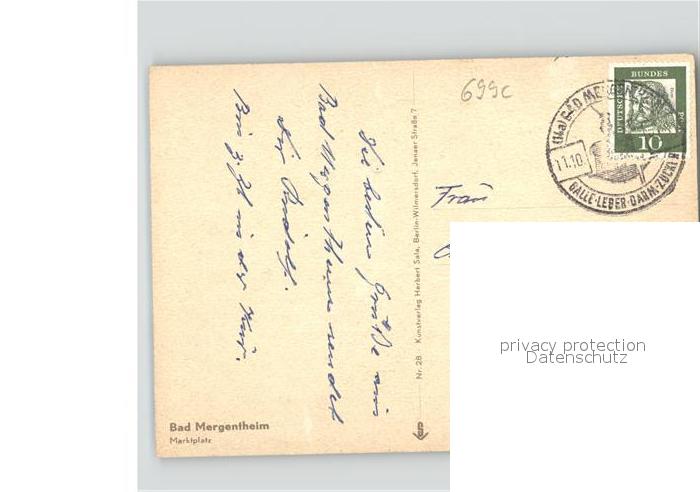 699c
DEUTSCHE BUNDES Post
10
(14a) BAD MERGENTHEIM
11.10
GALLE-LEBER-DARM-ZUCKER
Die besten Grüße aus
Bad Mergentheim sendet
Dir Rudolf.
Bin z. Zt in der Kur.
Nr. 28 Kunstverlag Herbert Sala, Berlin-Wilmersdorf, Jenaer Straße 7
Frau
privacy protection
Datenschutz
Bad Mergentheim
Marktplatz